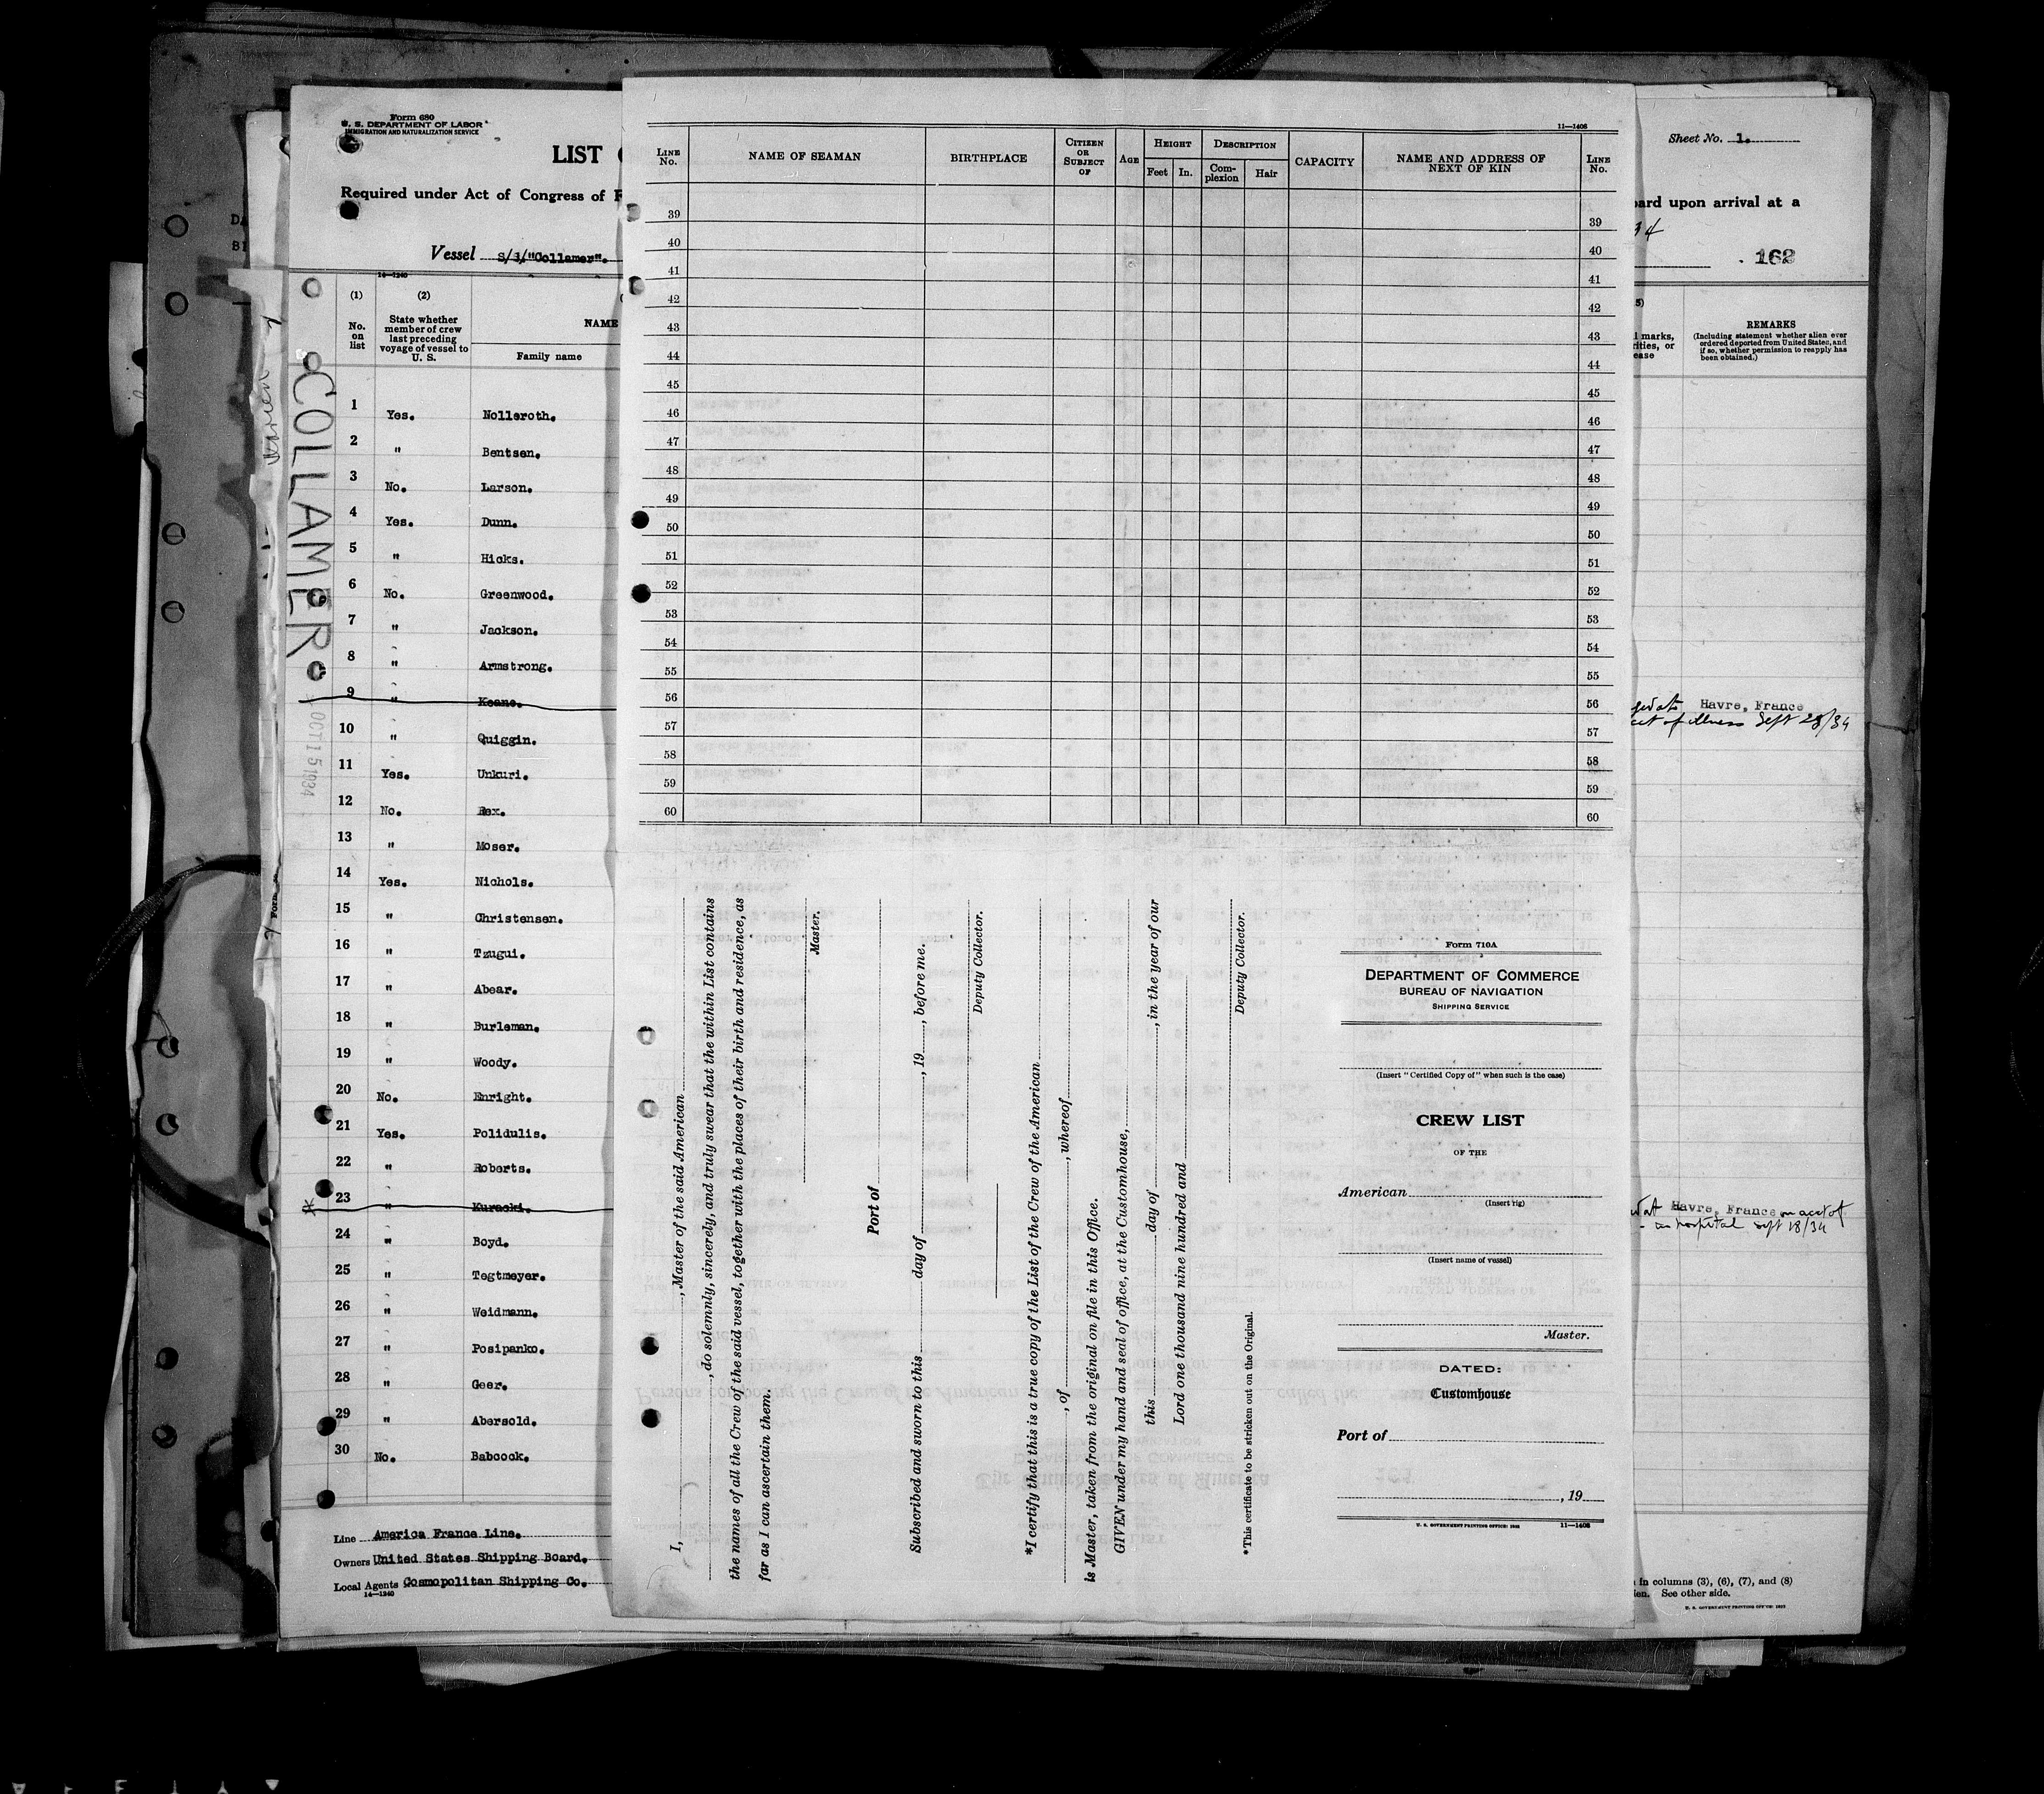 Form 680
U. S. DEPARTMENT OF LABOR
IMMIGRATION AND NATURALIZATION SERVICE
LIST
Required under Act of Congress of F
Vessel S/S/"Collamer".
14—1240
(1) (2)
No. on list
State whether member of crew last preceding voyage of vessel to U. S.
NAME
Family name
1 Yes. Nolleroth.
2 " Bentsen.
3 No. Larson.
4 Yes. Dunn.
5 " Hicks.
6 No. Greenwood.
7 " Jackson.
8 " Armstrong.
9 " Keane.
10 " Quiggin.
11 Yes. Unkuri.
12 No. Rex.
13 " Moser.
14 Yes. Nichols.
15 " Christensen.
16 " Tzugui.
17 " Abear.
18 " Burleman.
19 " Woody.
20 No. Enright.
21 Yes. Polidulis.
22 " Roberts.
23 " Kuracki.
24 " Boyd.
25 " Tegtmeyer.
26 " Weidmann.
27 " Posipanko.
28 " Geer.
29 " Abersold.
30 No. Babcock.
Line America France Line.
Owners United States Shipping Board.
Local Agents Cosmopolitan Shipping Co.
14—1240
COLLAMER
OCT 15 1934
11—1408
LINE No. NAME OF SEAMAN BIRTHPLACE CITIZEN OR SUBJECT OF AGE HEIGHT Feet In. DESCRIPTION Complexion Hair CAPACITY NAME AND ADDRESS OF NEXT OF KIN LINE No.
39 39
40 40
41 41
42 42
43 43
44 44
45 45
46 46
47 47
48 48
49 49
50 50
51 51
52 52
53 53
54 54
55 55
56 56
57 57
58 58
59 59
60 60
I, , Master of the said American
, do solemnly, sincerely, and truly swear that the within List contains
the names of all the Crew of the said vessel, together with the places of their birth and residence, as
far as I can ascertain them.
Master.
Port of
Subscribed and sworn to this day of , 19 , before me.
Deputy Collector.
*I certify that this is a true copy of the List of the Crew of the American
, of , whereof
is Master, taken from the original on file in this Office.
GIVEN under my hand and seal of office, at the Customhouse,
this day of , in the year of our
Lord one thousand nine hundred and
Deputy Collector.
*This certificate to be stricken out on the Original.
Form 710A
DEPARTMENT OF COMMERCE
BUREAU OF NAVIGATION
SHIPPING SERVICE
(Insert "Certified Copy of" when such is the case)
CREW LIST
OF THE
American
(Insert rig)
(Insert name of vessel)
Master.
DATED:
Customhouse
Port of
, 19
U. S. GOVERNMENT PRINTING OFFICE: 11—1408
Sheet No. 1.
ard upon arrival at a
34
162
5)
l marks,
ities, or
ease
REMARKS
(Including statement whether alien ever ordered deported from United States, and if so, whether permission to reapply has been obtained.)
Havre, France
of illness Sept 28/34
at Havre, France on acct of
hospital Sept 18/34
in columns (3), (6), (7), and (8)
en. See other side.
U. S. GOVERNMENT PRINTING OFFICE: